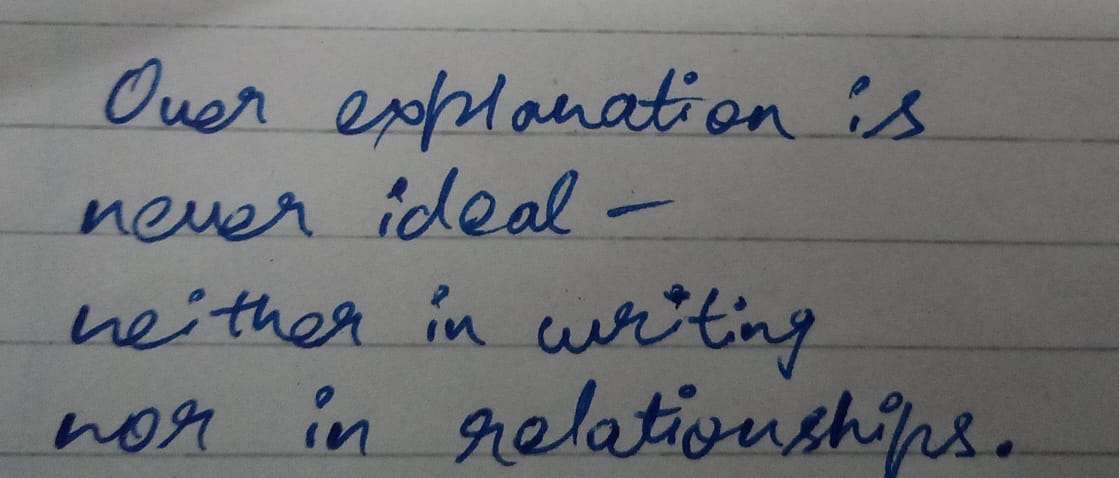 Over explanation is
never ideal –
neither in writing
nor in relationships.